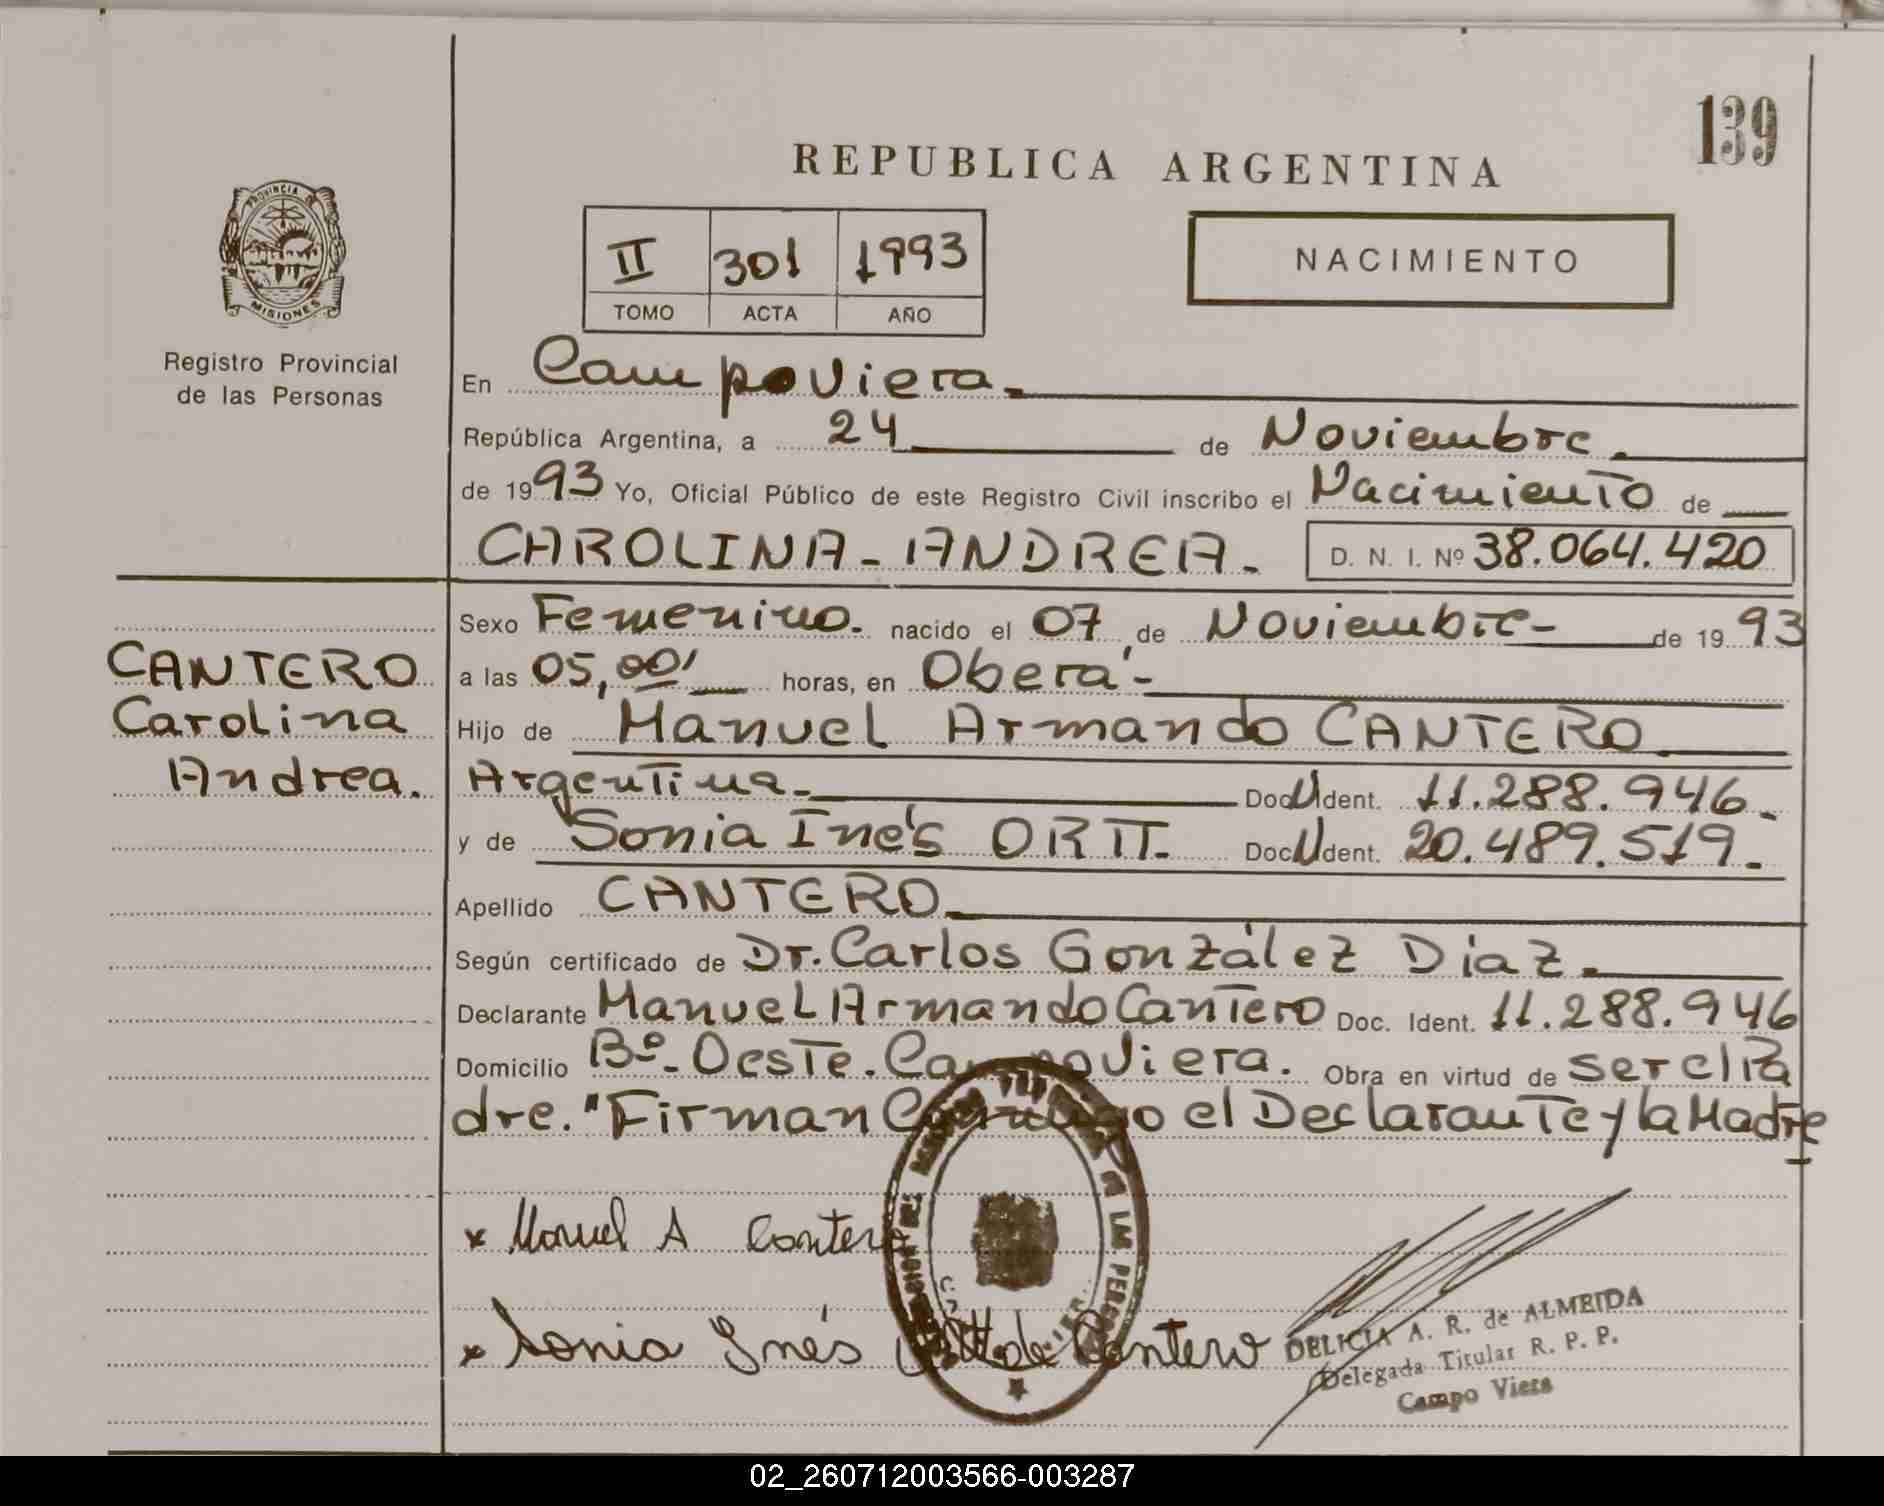 139
REPUBLICA ARGENTINA
PROVINCIA DE
MISIONES
Registro Provincial
de las Personas
II 301 1993
TOMO ACTA AÑO
NACIMIENTO
En Campoviera.
República Argentina, a 24 de Noviembre.
de 1993 Yo, Oficial Público de este Registro Civil inscribo el Nacimiento de
CAROLINA - ANDREA. D. N. I. Nº 38.064.420
CANTERO
Carolina
Andrea.
Sexo Femenino. nacido el 07 de Noviembre - de 1993
a las 05,00' horas, en Oberá -
Hijo de Manuel Armando CANTERO
Argentina. Doc. Ident. 11.288.946.
y de Sonia Inés ORTT. Doc. Ident. 20.489.519.
Apellido CANTERO
Según certificado de Dr. Carlos González Diaz.
Declarante Manuel Armando Cantero Doc. Ident. 11.288.946
Domicilio Bº. Oeste. Campoviera. Obra en virtud de ser el Pa
dre. "Firman Conmigo el Declarante y la Madre
x Manuel A Cantero
x Sonia Inés de Cantero
DELICIA A. R. de ALMEIDA
Delegada Titular R. P. P.
Campo Viera
02_260712003566-003287